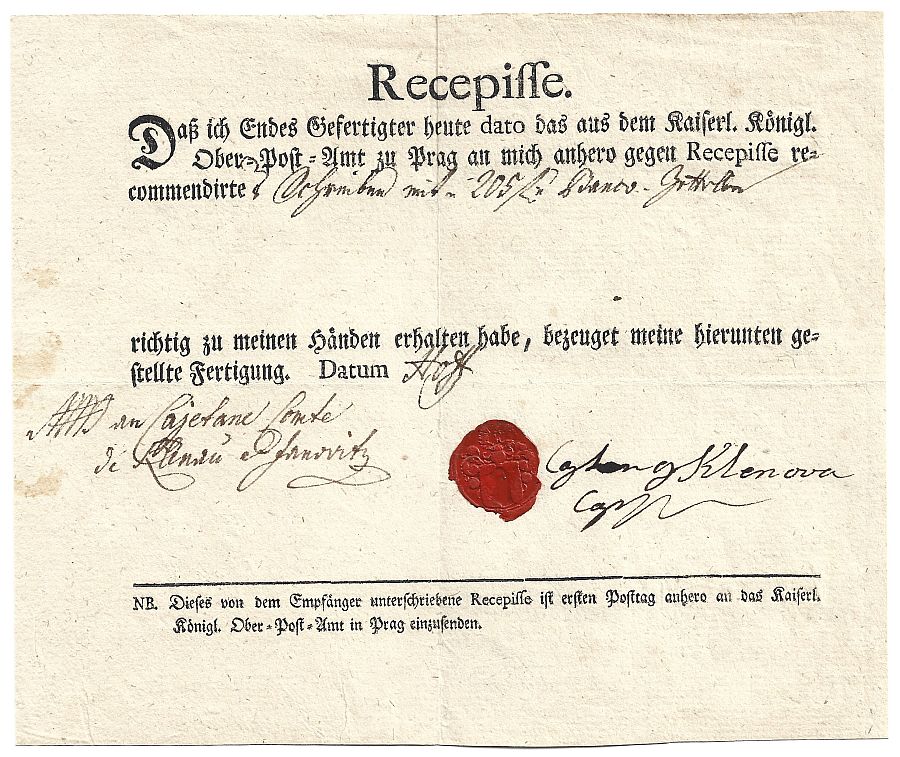 Recepisse.
Daß ich Endes Gefertigter heute dato das aus dem Kaiserl. Königl.
Ober-Post-Amt zu Prag an mich anhero gegen Recepisse re-
commendirte Schreiben mit 205 f Banco-
richtig zu meinen Händen erhalten habe, bezeuget meine hierunten ge-
stellte Fertigung. Datum
an Cajetane Comte
de Klenau
Klenova
NB. Dieses von dem Empfänger unterschriebene Recepisse ist ersten Posttag anhero an das Kaiserl.
Königl. Ober-Post-Amt in Prag einzusenden.